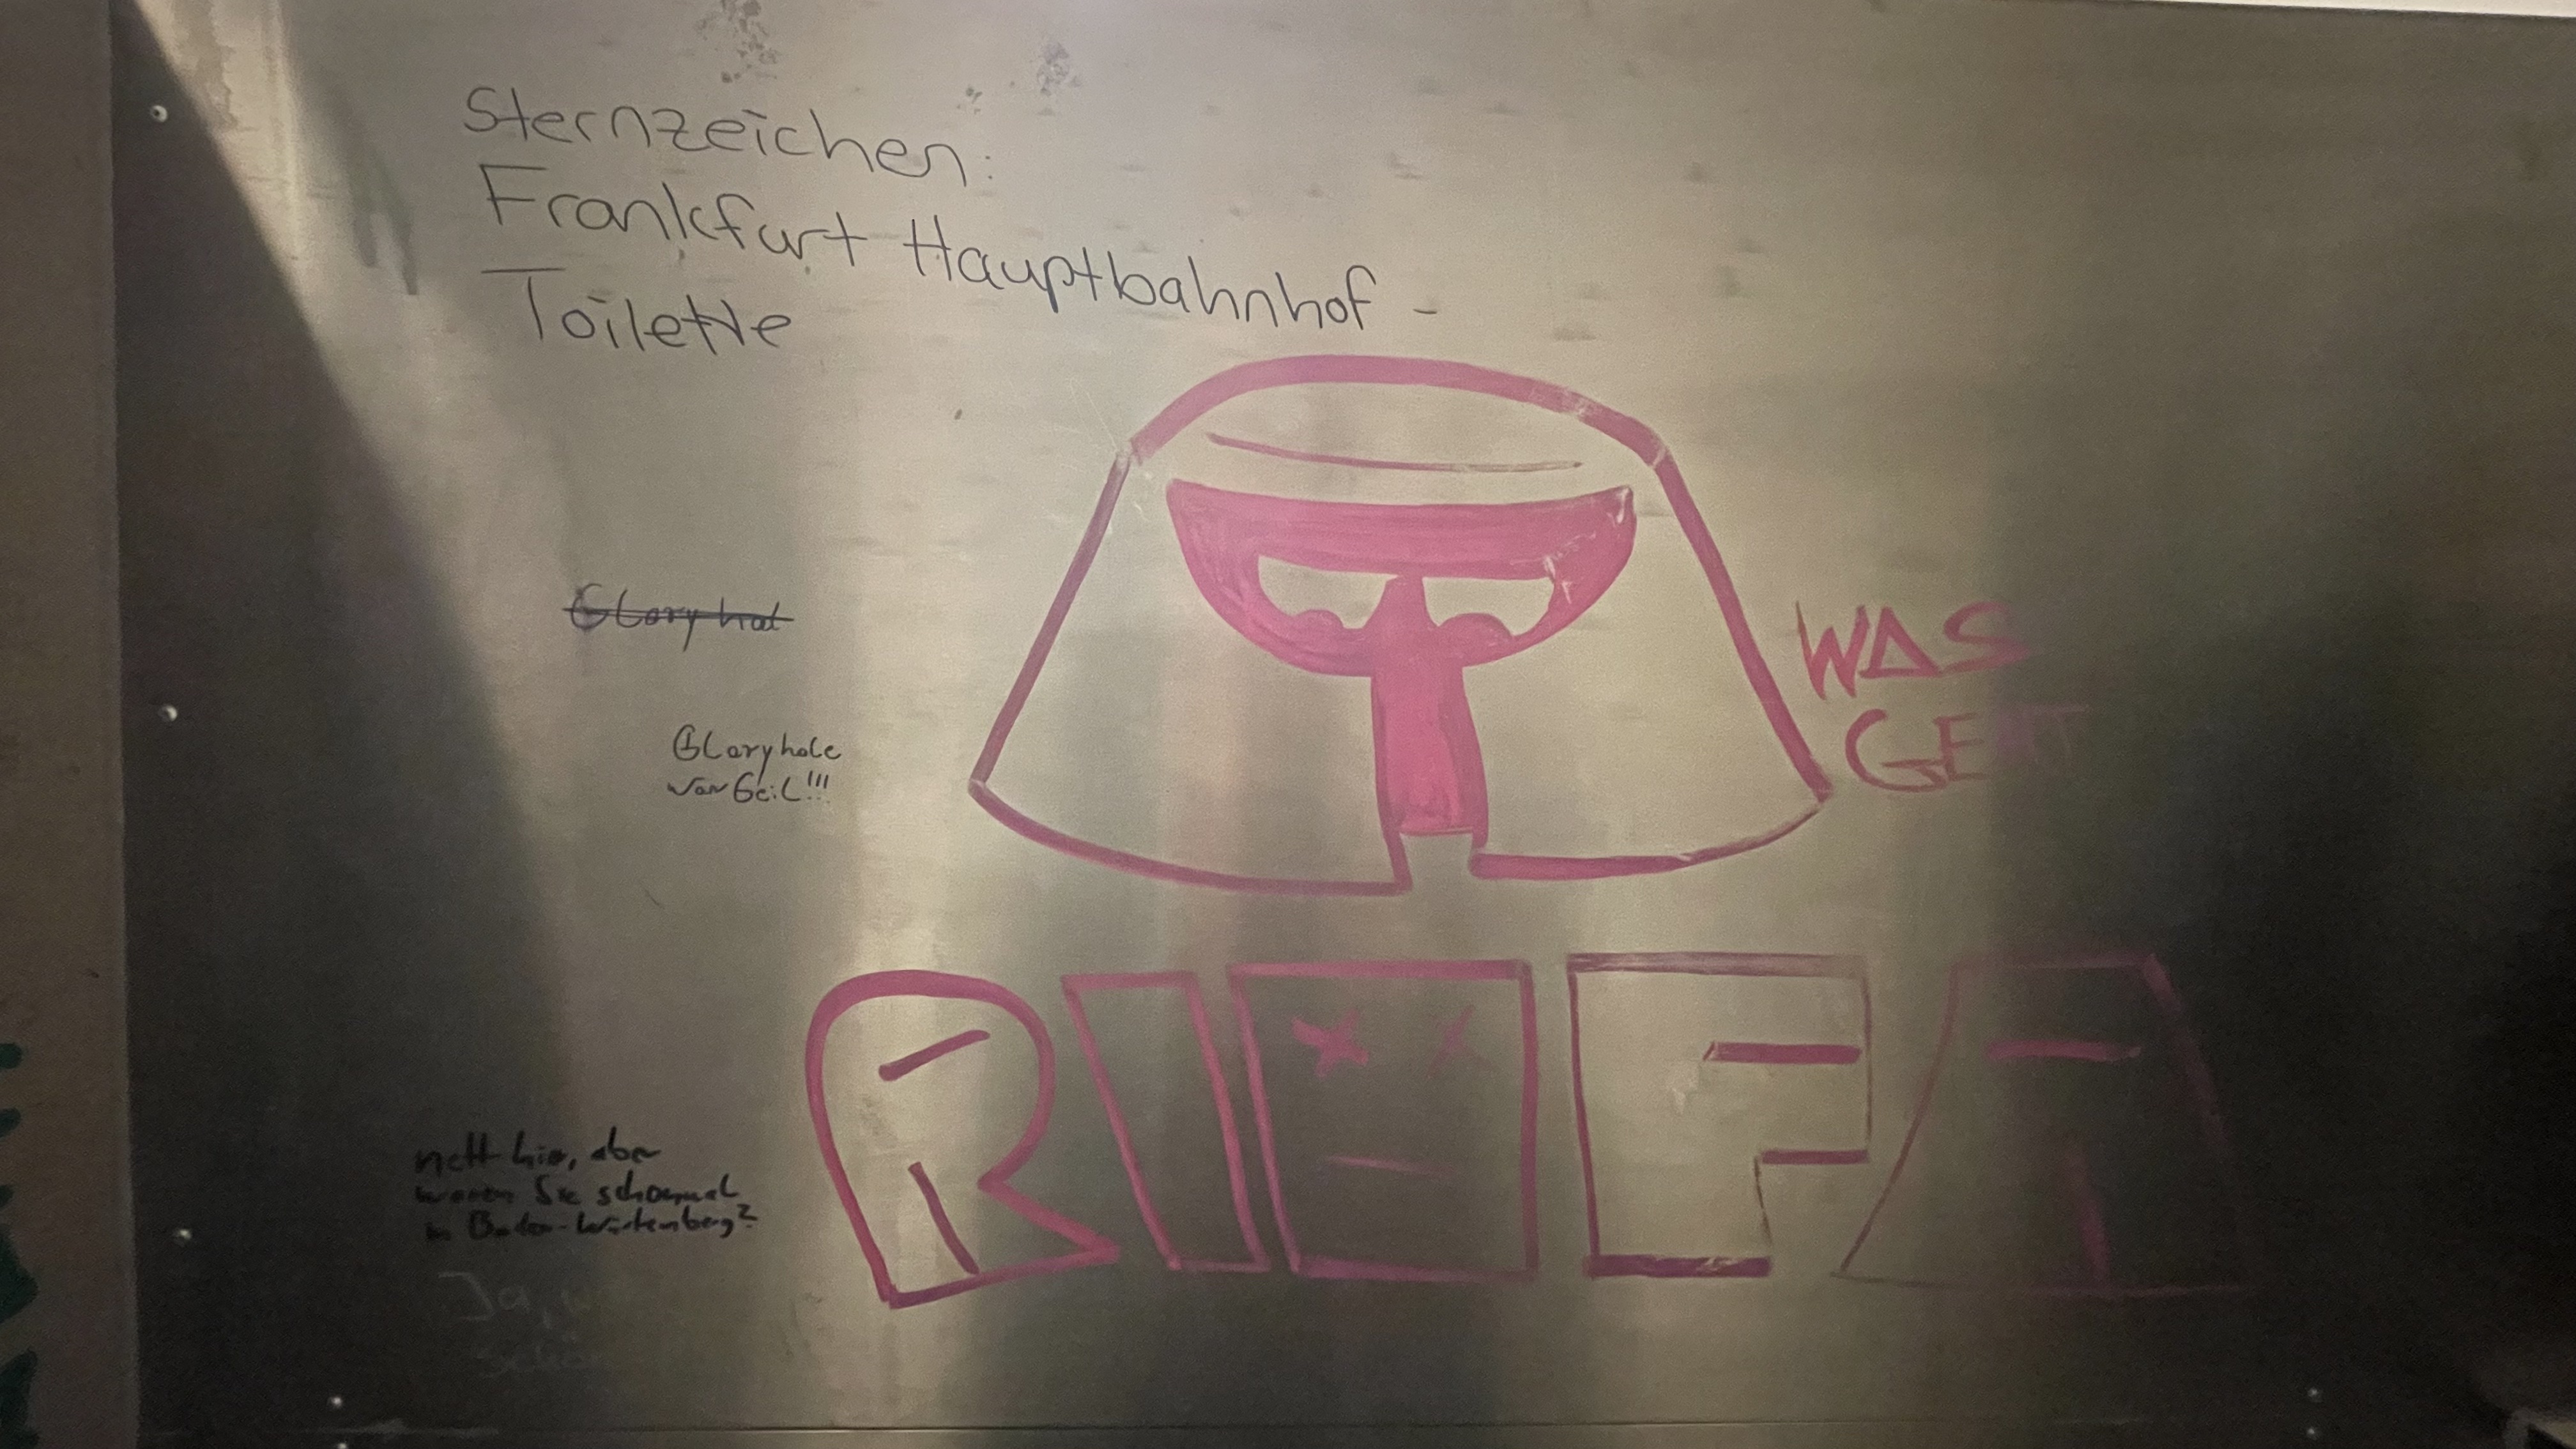 Sternzeichen:
Frankfurt Hauptbahnhof -
Toilette
WAS
GEHT
Gloryhole
war Geil!!!
RIEFA
nett hier, aber
waren Sie schonmal
in Baden-Würtemberg?
Ja,